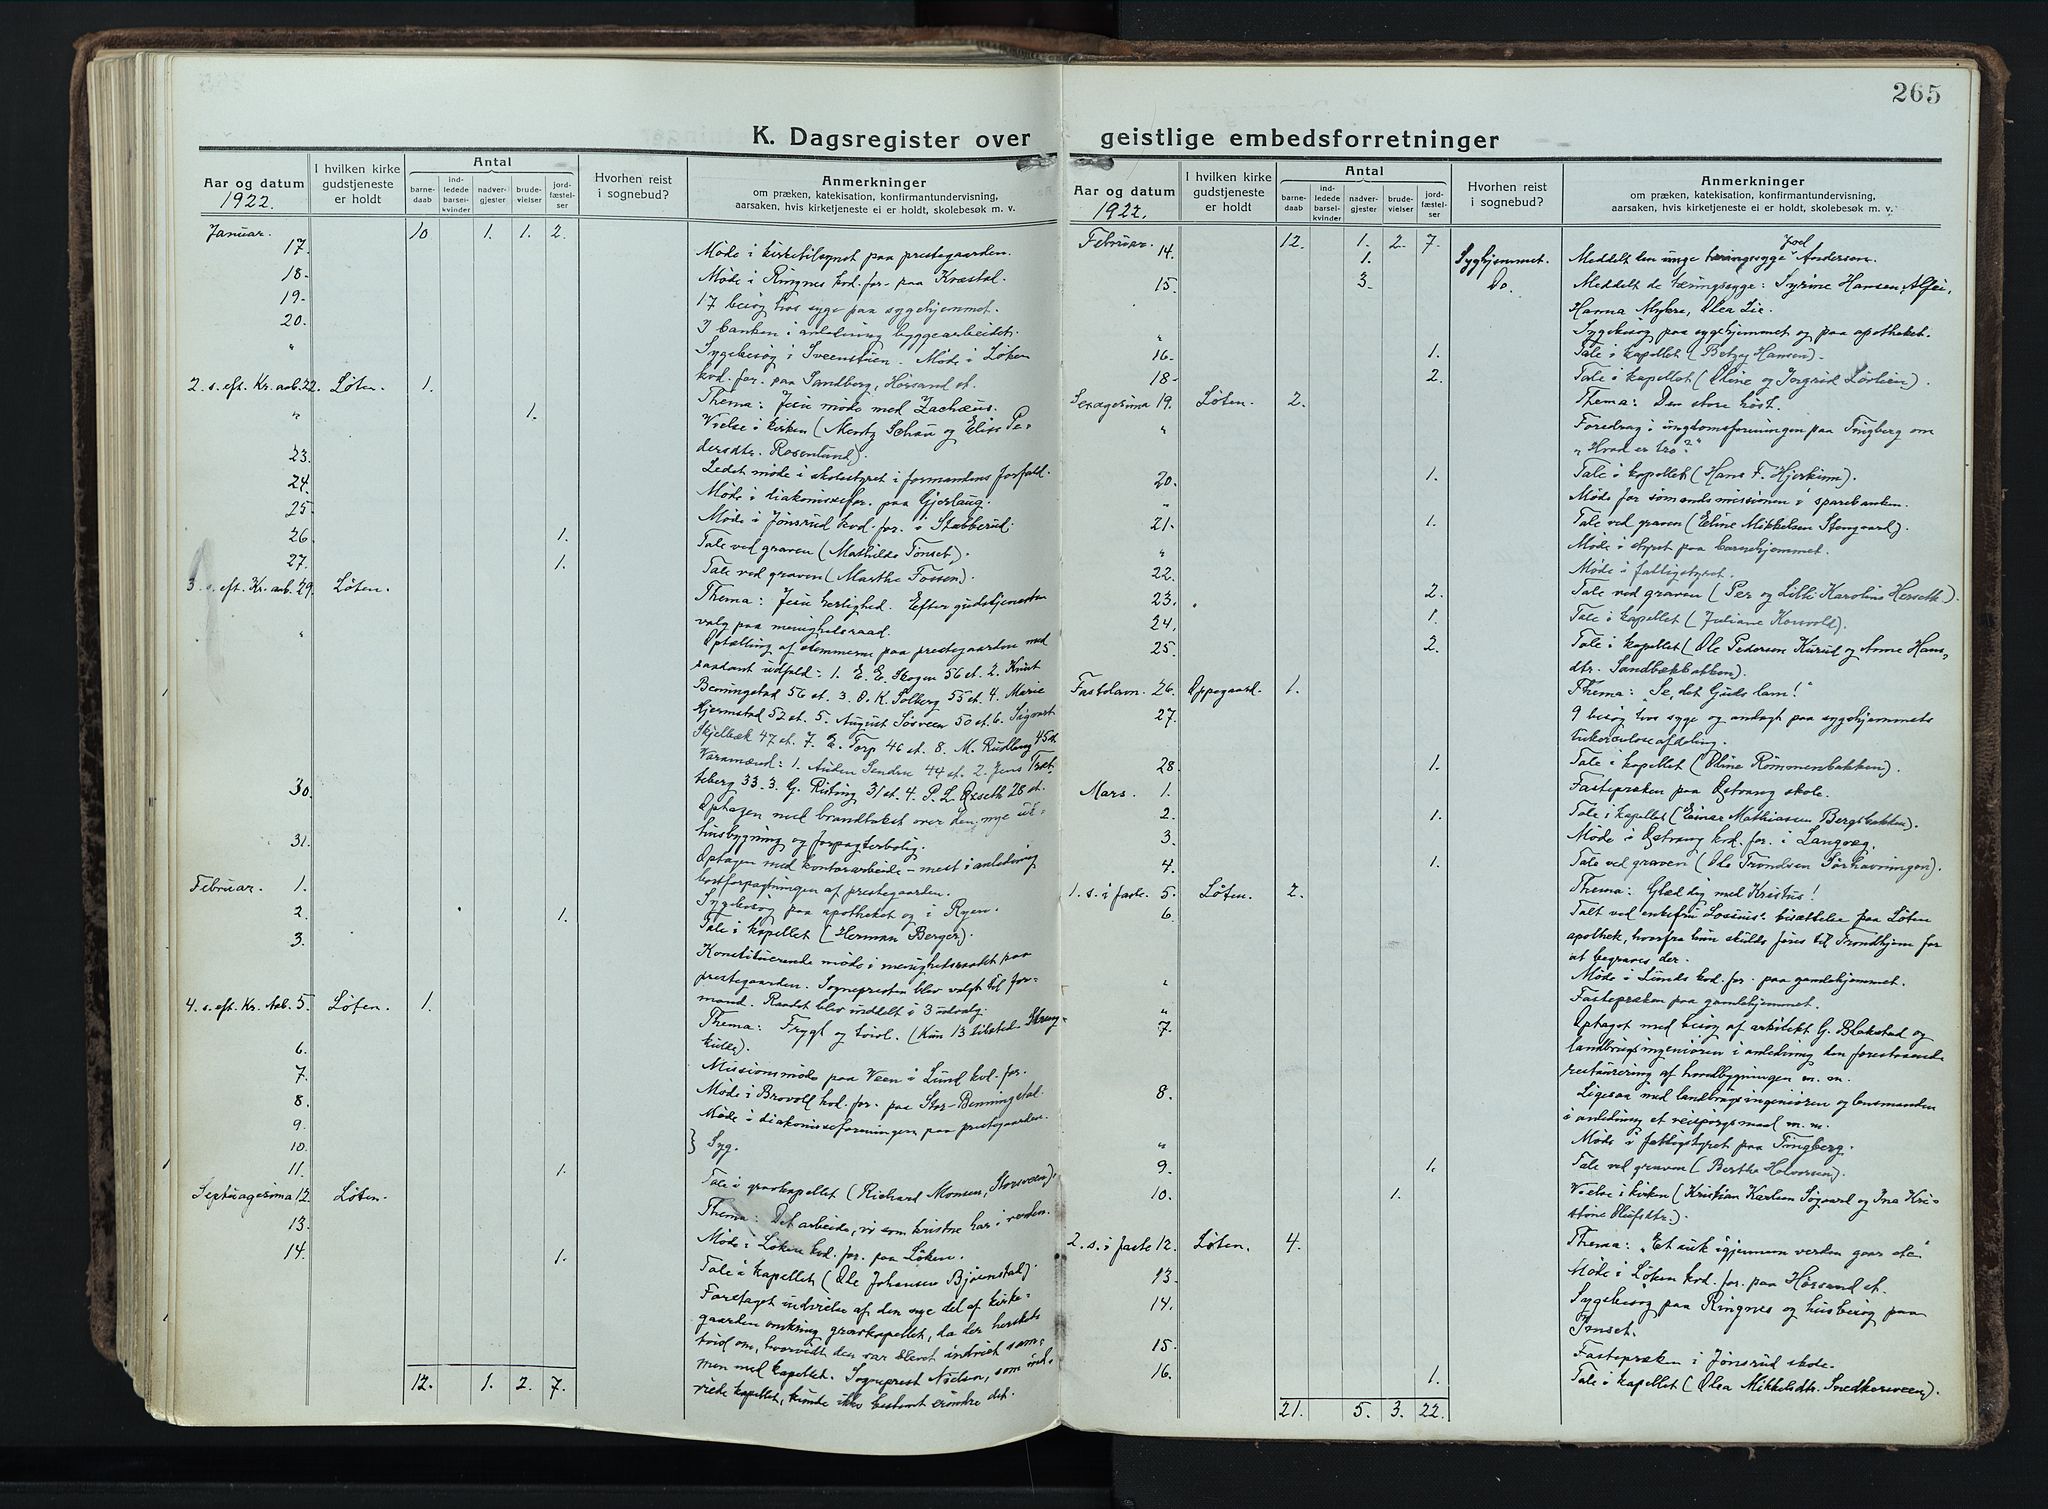 265
K. Dagsregister over geistlige embedsforretninger
Aar og datum
1922.
I hvilken kirke gudstjeneste er holdt
Antal
barne-daab
ind-ledede barsel-kvinder
nadver-gjester
brude-vielser
jord-fæstel-ser
Hvorhen reist i sognebud?
Anmerkninger
om præken, katekisation, konfirmantundervisning,
aarsaken, hvis kirketjeneste ei er holdt, skolebesøk m. v.
Januar. 10 1. 1. 2.
17. Møde i kirketilsynet paa prestegaarden.
18. Møde i Ringnes kvd. for. paa Kvæstad.
19. 17 besøg hos syge paa sygehjemmet.
20. I banken i anledning byggearbeidet.
" Sygebesøg i Sveenstuen. Møde i Løken
kvd. for. paa Sandberg, Hørsand et.
2. s. eft. Kr. aab. 22. Løten. 1. Thema: Jesu møde med Zachæus.
" 1. Vielse i kirken (Mentz Schau og Elise Pe-
dersdtr. Rosenlund).
23. Ledet møde i skolestyret i formandens forfald.
24. Møde i diakonissefor. paa Gjørlaug.
25. Møde i Jønsrud kvd. for. i Stubberud.
26. 1. Tale ved graven (Mathilde Tønset).
27. 1. Tale ved graven (Marthe Fossen).
3. s. eft. Kr. aab. 29. Løten. Thema: Jesu herlighed. Efter gudstjenesten
valg paa menighedsraad.
" Optælling af stemmerne paa prestegaarden med
saadant udfald: 1. E. E. Skogen 56 st. 2. Knut
Benningstad 56 st. 3. O. K. Solberg 55 st. 4. Marie
Hjermstad 52 st. 5. August Sørveen 50 st. 6. Sigvart
Skjelbæk 47 st. 7. E. Torp 46 st. 8. M. Rudberg 45 st.
Varamænd: 1. Auden Sendre 44 st. 2. Jens Træt-
teberg 33. 3. G. Risting 31 st. 4. P. L. Øxseth 28 st.
30. Optagen med brandtakst over den nye ut-
husbygning og forpagterbolig.
31. Optagen med kontorarbeide – mest i anledning
bortforpagtningen af prestegaarden.
Februar. 1. Sygebesøg paa apotheket og i Ryen.
2. 1. Tale i kapellet (Herman Berger).
3. Konstituerende møde i menighetsraadet paa
prestegaarden. Sognepresten blev valgt til for-
mand. Raadet blev inddelt i 3 udvalg.
4. s. eft. Kr. Aab. 5. Løten. 1. Thema: Frygt og tvivl. (Kun 13 tilsted. Streng
kulde).
6. Missionsmøde paa Veen i Lund kvd. for.
7. Møde i Brovold kvd. for. paa Stor-Benningstad.
8. Møde i diakonisseforeningen paa prestegaarden.
9.
10. } Syg.
11. 1. Tale i gravkapellet (Richard Monsen, Storsveen).
Septuagesima 12. Løten. Thema: Det arbeide, vi som kristne har i verden.
13. Møde i Løken kvd. for. paa Løken.
14. 1. Tale i kapellet (Ole Johansen Bjørnstad).
Foretaget indvielse af den nye del af kirke-
gaarden omkring gravkapellet, da der herskede
tvivl om, hvorvidt den var blevet indviet sam-
men med kapellet. Sogneprest Nielsen, som ind-
viede kapellet, kunde ikke bestemt erindre det.
12. 1. 2. 7.
Aar og datum
1922.
I hvilken kirke gudstjeneste er holdt
Antal
barne-daab
ind-ledede barsel-kvinder
nadver-gjester
brude-vielser
jord-fæstel-ser
Hvorhen reist i sognebud?
Anmerkninger
om præken, katekisation, konfirmantundervisning,
aarsaken, hvis kirketjeneste ei er holdt, skolebesøk m. v.
Februar. 12. 1. 2. 7.
14. 1. Sygehjemmet. Meddelt den unge tæringssyge Joel Andersen.
15. 3. Do. Meddelt de tæringssyge: Syrine Hansen, Alfei,
Hanna Myhre, Olea Lie.
" Sygebesøg paa sygehjemmet og paa apotheket.
16. 1. Tale i kapellet (Betzy Hansen).
18. 2. Tale i kapellet (Oline og Ingrid Løvlien).
Sexagesima 19. Løten. 2. Thema: Den store høst.
" Foredrag i ungdomsforeningen paa Tingberg om
"Hvad er tro?"
20. 1. Tale i kapellet (Hans F. Hjerkinn).
" Møde for sømandsmissionen i sparebanken.
21. 1. Tale ved graven (Eline Mikkelsen Stengaard).
" Møde i styret paa barnehjemmet.
22. Møde i fattigstyret.
23. 2. Tale ved graven (Per og Lilli Karoline Herseth).
24. 1. Tale i kapellet (Juliane Korsvold).
25. 2. Tale i kapellet (Ole Pedersen Kurud og Anne Hans-
dtr. Sandbækbakken).
Fastelavn. 26. Oppegaard. 1. Thema: "Se, det Guds lam!"
27. 9 besøg hos syge og andagt paa sygehjemmets
tuberculoseafdeling.
28. 1. Tale i kapellet (Oline Rømmenbakken).
Mars. 1. Fastepræken paa Østvang skole.
2. 1. Tale i kapellet (Einar Mathiassen Bergsbakken).
3. Møde i Østvang kvd. for. i Langvæg.
4. 1. Tale ved graven (Ole Trondsen Sørhavningen).
1. s. i faste. 5. Løten. 2. Thema: Glæd dig med Kristus!
6. Talt ved enkefru Losius' bisættelse paa Løten
apothek, hvorfra hun skulde føres til Trondhjem for
at begraves der.
" Møde i Lunds kvd. for. paa gamlehjemmet.
" Fastepræken paa gamlehjemmet.
7. Optaget med besøg af arkitekt G. Blakstad og
landbrugsingeniøren i anledning den forestaaende
restaurering af hovedbygningen m. m.
8. Ligesaa med landbrugsingeniøren og lensmanden
i anledning et veispørgsmaal m. m.
" Møde i fattigstyret paa Tingberg.
9. 1. Tale ved graven (Berthe Halvorsen).
10. 1. Vielse i kirken (Kristian Karlsen Søgaard og Ina Kri-
stine Olufsdtr.).
2. s. i faste 12. Løten. 4. Thema: "Et suk igjennem verden gaar etc"
13. Møde i Løken kvd. for. paa Hørsand et.
14. Sygebesøg paa Ringnes og husbesøg paa
Tønset.
15. Fastepræken i Jønsrud skole.
16. 1. Tale i kapellet (Olea Mikkelsdtr. Snedkersveen).
21. 5. 3. 22.